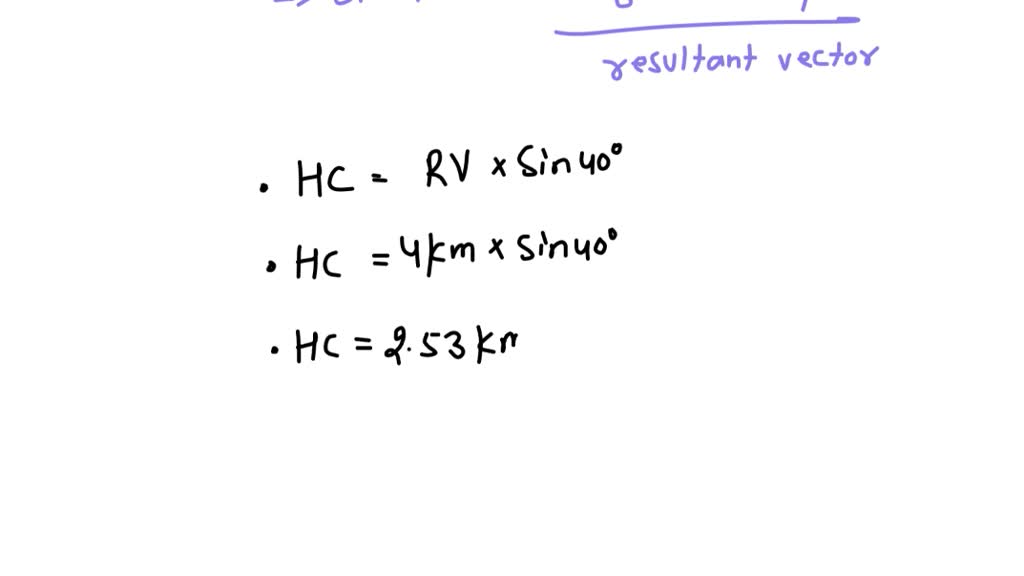 resultant vector
. HC = RV × Sin 40°
. HC = 4km × Sin 40°
. HC = 2.53 km